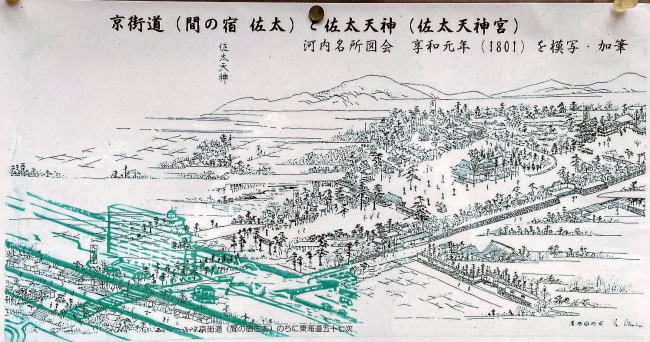 京街道（間の宿 佐太）と佐太天神（佐太天神宮）
河内名所図会 享和元年（1801）を模写・加筆
佐太天神
京街道（間の宿佐太）のちに東海道五十七次